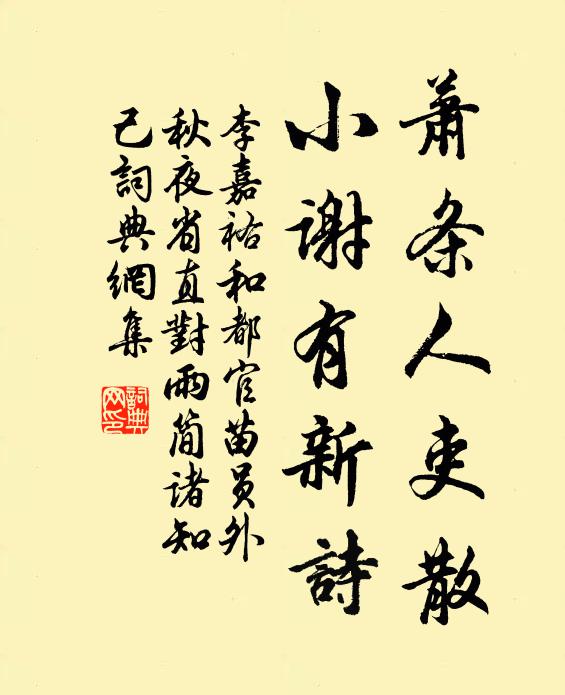 蕭条人吏散
小謝有新詩
李嘉祐和都官苗員外
秋夜省直對雨简諸知
己詞典網集
詞典
网印